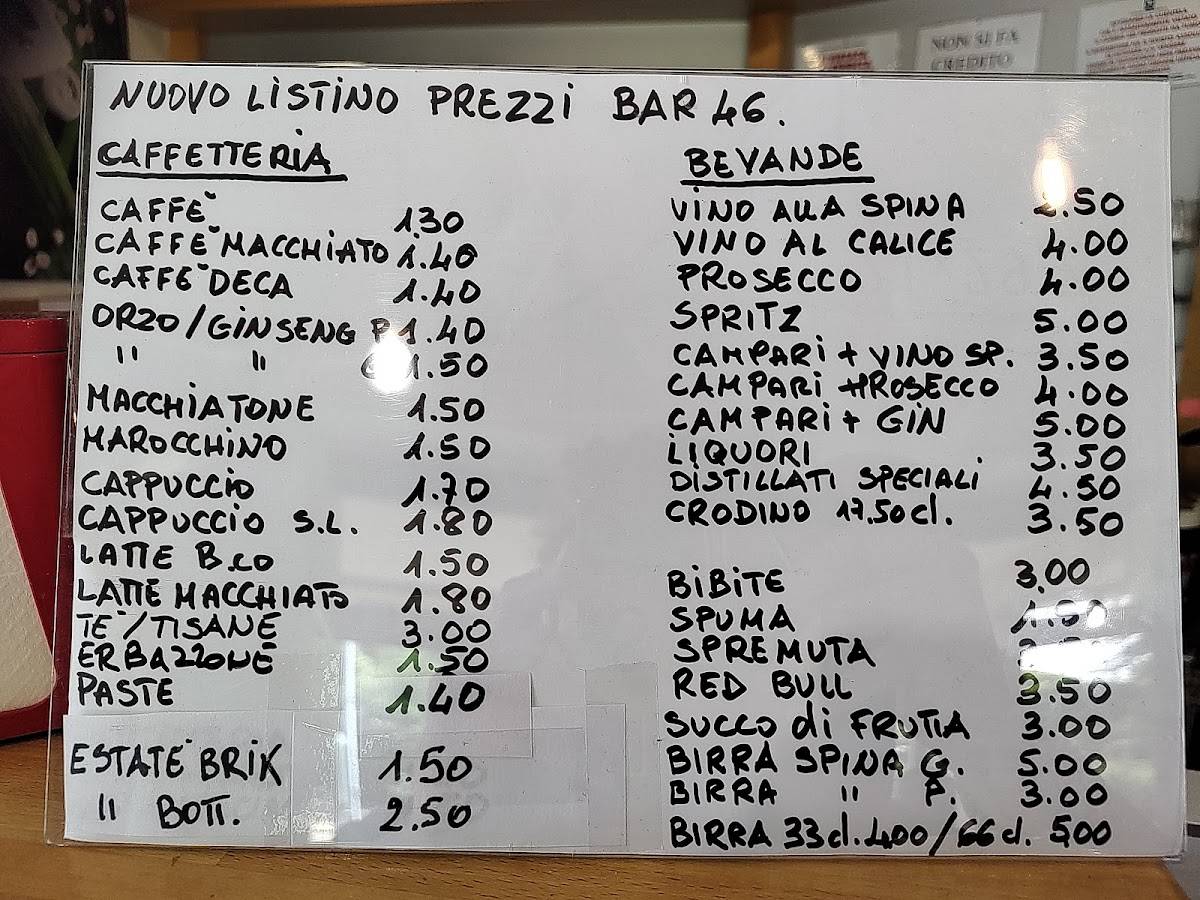 NON SI FA
CREDITO
NUOVO LISTINO PREZZI BAR 46.
CAFFETTERIA
CAFFE` 1.30
CAFFE` MACCHIATO 1.40
CAFFE` DECA 1.40
ORZO/GINSENG P 1.40
" " G 1.50
MACCHIATONE 1.50
MAROCCHINO 1.50
CAPPUCCIO 1.70
CAPPUCCIO S.L. 1.80
LATTE B.CO 1.50
LATTE MACCHIATO 1.80
TE`/TISANE 3.00
ERBAZZONE 1.50
PASTE 1.40
ESTATE` BRIK 1.50
" BOTT. 2.50
BEVANDE
VINO ALLA SPINA
VINO AL CALICE 4.00
PROSECCO 4.00
SPRITZ 5.00
CAMPARI + VINO SP. 3.50
CAMPARI + PROSECCO 4.00
CAMPARI + GIN 5.00
LIQUORI 3.50
DISTILLATI SPECIALI 4.50
CRODINO 17.50 cl. 3.50
BIBITE 3,00
SPUMA 1.50
SPREMUTA
RED BULL 3.50
SUCCO di FRUTTA 3.00
BIRRA SPINA G. 5.00
BIRRA " P. 3.00
BIRRA 33 cl. 4.00/66 cl. 5,00